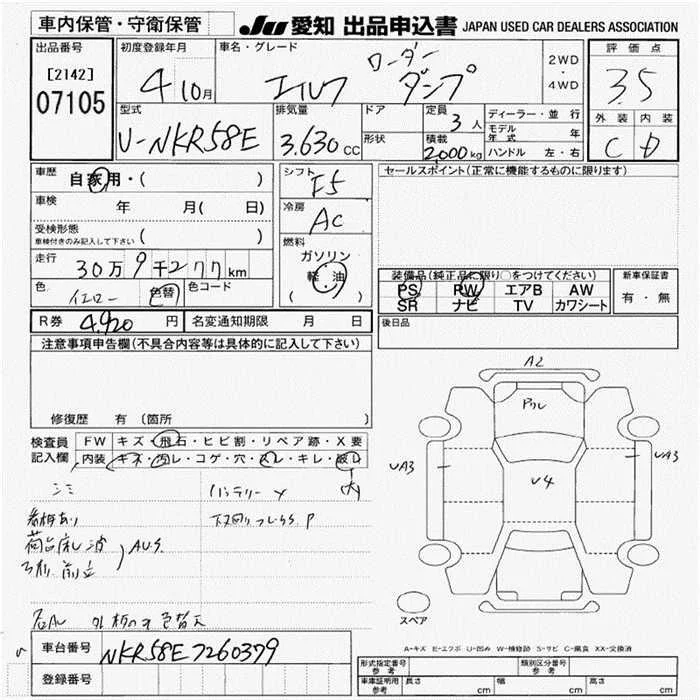 車内保管・守衛保管
JU 愛知 出品申込書 JAPAN USED CAR DEALERS ASSOCIATION
出品番号
[2142]
07105
初度登録年月
4 10月
車名・グレード
エルフ ローダーダンプ
2WD
・
4WD
評価点
3.5
外装 内装
C D
型式
U-NKR58E
排気量
3.630 CC
ドア
形状
定員
3 人
積載
2000 kg
ディーラー・並行
モデル年式 年
ハンドル 左・右
車歴
自家用・( )
車検
年 月( 日)
受検形態
車検付きのみ記入して下さい ( )
走行
30万9千277km
色
イエロー 色替
色コード
シフト
F5
冷房
AC
燃料
ガソリン
軽油
( )
セールスポイント(正常に機能するものに限ります)
装備品(純正品に限り○をつけてください)
PS PW エアB AW
SR ナビ TV カワシート
新車保証書
有・無
R券 4.920 円
名変通知期限 月 日
後日品
注意事項申告欄(不具合内容等は具体的に記入して下さい)
修復歴 有 (箇所 )
検査員記入欄
FW キズ・飛石・ヒビ割・リペア跡・X要
内装 キズ・汚レ・コゲ・穴・スレ・キレ・破レ
シミ バッテリー ナ 内
看板あり 下廻りフレームS P
荷台床し波
AUS
名AU 外板の才色替大
A2
UA3 U4 UA3
スペア
A-キズ E-エクボ U-凹み W-補修跡 S-サビ C-腐食 XX-交換済
車台番号 NKR58E7260379
登録番号
形式指定番号 参考 類別区分番号 参考
車庫証明用 参考 長さ cm 幅 cm 高さ cm